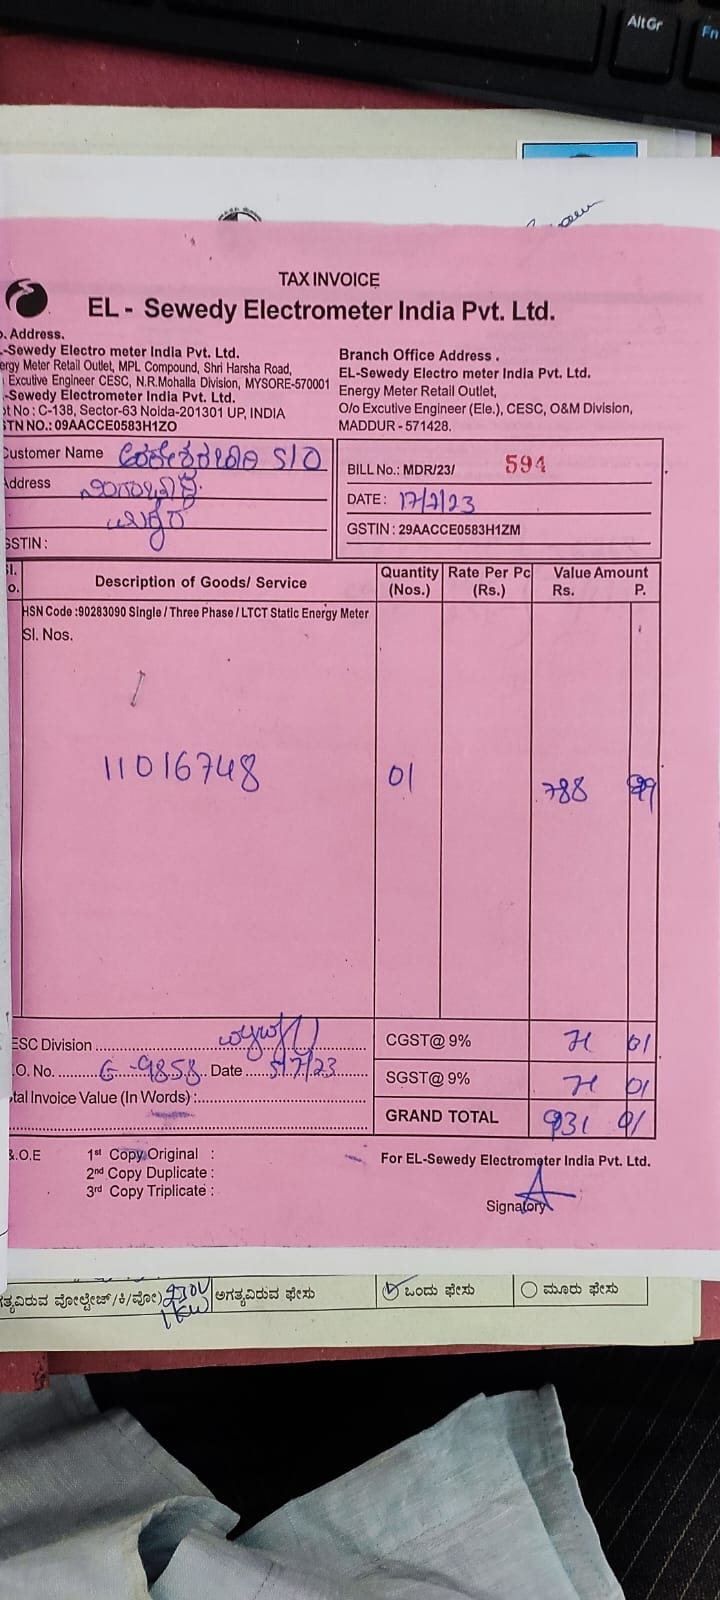 AltGr
Fn
TAX INVOICE
EL - Sewedy Electrometer India Pvt. Ltd.
. Address.
-Sewedy Electro meter India Pvt. Ltd.
ergy Meter Retail Outlet, MPL Compound, Shri Harsha Road,
Excutive Engineer CESC, N.R.Mohalla Division, MYSORE-570001
-Sewedy Electrometer India Pvt. Ltd.
ot No : C-138, Sector-63 Noida-201301 UP, INDIA
STN NO.: 09AACCE0583H1ZO
Branch Office Address .
EL-Sewedy Electro meter India Pvt. Ltd.
Energy Meter Retail Outlet,
O/o Excutive Engineer (Ele.), CESC, O&M Division,
MADDUR - 571428.
Customer Name S/O
Address
GSTIN :
BILL No.: MDR/23/ 594
DATE : 17/7/23
GSTIN : 29AACCE0583H1ZM
Sl. Description of Goods/ Service Quantity Rate Per Pc Value Amount
o. (Nos.) (Rs.) Rs. P.
HSN Code :90283090 Single / Three Phase / LTCT Static Energy Meter
Sl. Nos.
11016748 01 788 99
ESC Division
.O. No. G-9858 Date 5/7/23
tal Invoice Value (In Words) :
CGST@ 9% 71 01
SGST@ 9% 71 01
GRAND TOTAL 931 01
&.O.E 1st Copy Original :
2nd Copy Duplicate :
3rd Copy Triplicate :
For EL-Sewedy Electrometer India Pvt. Ltd.
Signatory
ಗತ್ಯವಿರುವ ವೋಲ್ಟೇಜ್/ಕಿ/ವೋ) 1KW ಅಗತ್ಯವಿರುವ ಫೇಸು ಒಂದು ಫೇಸು ಮೂರು ಫೇಸು